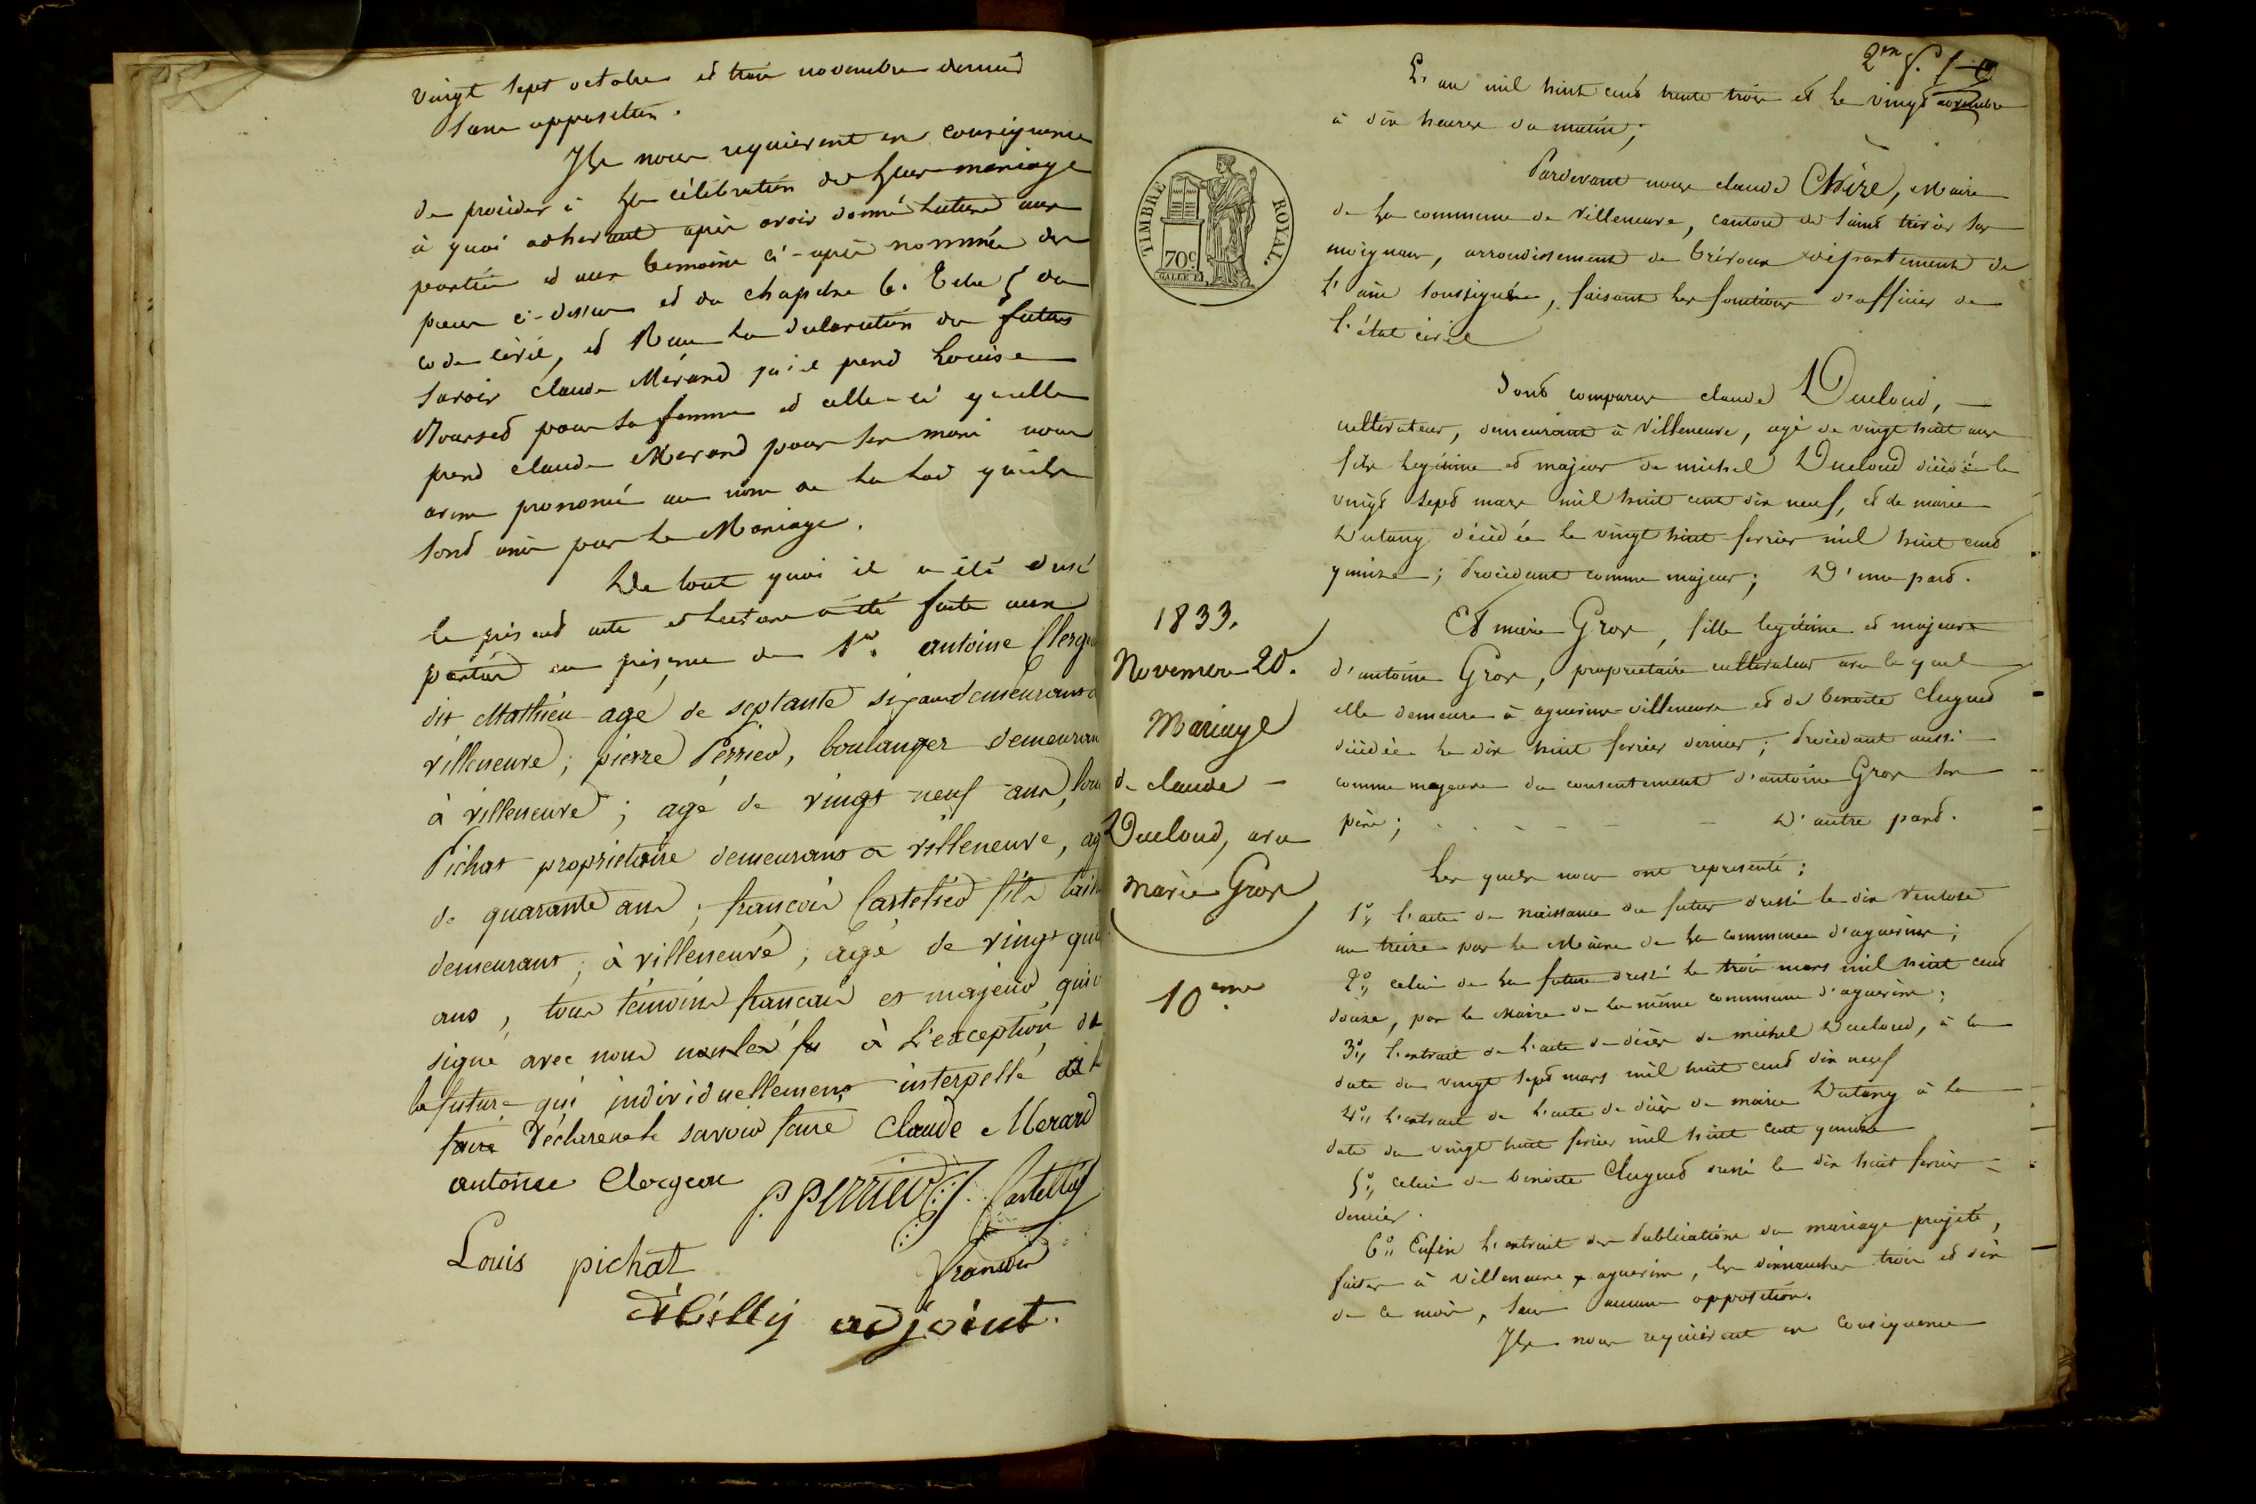 vingt sept octobre et trois novembre dernier
sans opposition.
Ils nous requierent en consequence
de proceder à la célébration de leur mariage
à quoi adherant après avoir donné lecture aux
parties et aux temoins ci-après nommés des
pieces ci-dessus et du chapitre 6. du
code civil, et Reçu la declaration des futurs
savoir claude Mérand qu'il prend Louise
pour sa femme et celle-ci qu'elle
prend claude Merand pour son mari nous
avons prononcé au nom de la loi qu'ils
sont unis par le Mariage.
De tout quoi il a été dressé
le présent acte et lecture a été faite aux
parties en présence de Sr. antoine Clerg
dit Mathieu agé de septante six ans demeurant à
villeneuve; pierre Perrier, boulanger demeurant
à villeneuve; agé de vingt neuf ans, Louis
Pichat propriétaire demeurant a villeneuve, ag
de quarante ans; francois Castellier fils
demeurant, à villeneuve, agé de vingt qua
ans, tous témoins francais et majeurs, qui
signé avec nous à L'exception de
la future qui individuellement interpellé de le
faire Déclarent savoir faire Claude Merand
antoine Clergeon
P. Perrier Castellier
Louis pichat francois
adjoint.
2me f.
L'an mil huit cent trente trois et le vingt novembre
à dix heures du matin;
TIMBRE ROYAL.
70c
Pardevant nous claude Chize, Maire
de la commune de Villeneuve, canton de Saint trivier sur
moignans, arrondissement de trévoux département de
L'ain soussigné, faisant les fonctions d'officier de
l'état civil
Sont comparus claude Ducloud,
cultivateur, demeurant à Villeneuve, agé de vingt huit ans
fils legitime et majeur de michel Ducloud décédé le
vingt sept mars mil huit cent dix neuf, et de marie
Dutang décédée le vingt huit fevrier mil huit cent
quinze; Procedant comme majeur; D'une part.
Et marie Gros, fille legitime et majeure
d'antoine Gros, propriétaire cultivateur avec le quel
elle demeure à agnerins-villeneuve et de benoite Clugnet
décédée le dix huit fevrier dernier; Procedant aussi
comme majeure du consentement d'antoine Gros son
père; D'autre part.
Les quels nous ont representé;
1°,, l'acte de naissance du futur dressé le dix Ventose
an treize par le Maire de la commune d'agnerins;
2°,, celui de la future dressé le trois mars mil huit cent
douze, par le Maire de la même commune d'agnerins;
3°,, l'extrait de l'acte de décès de michel Ducloud, à la
date du vingt sept mars mil huit cent dix neuf
4°,, l'extrait de l'acte de décès de marie Dutang à la
date du vingt huit fevrier mil huit cent quinze
5°,, celui de benoite Clugnet dressé le dix huit fevrier
dernier.
6°,, Enfin l'extrait des Publications du mariage projeté,
faites à Villeneuve & agnerins, les dimanches trois et dix
de ce mois, sans aucune opposition.
Ils nous requièrent en Consequence
1833.
Novembre 20.
Mariage
de claude
Ducloud, avec
marie Gros
10eme